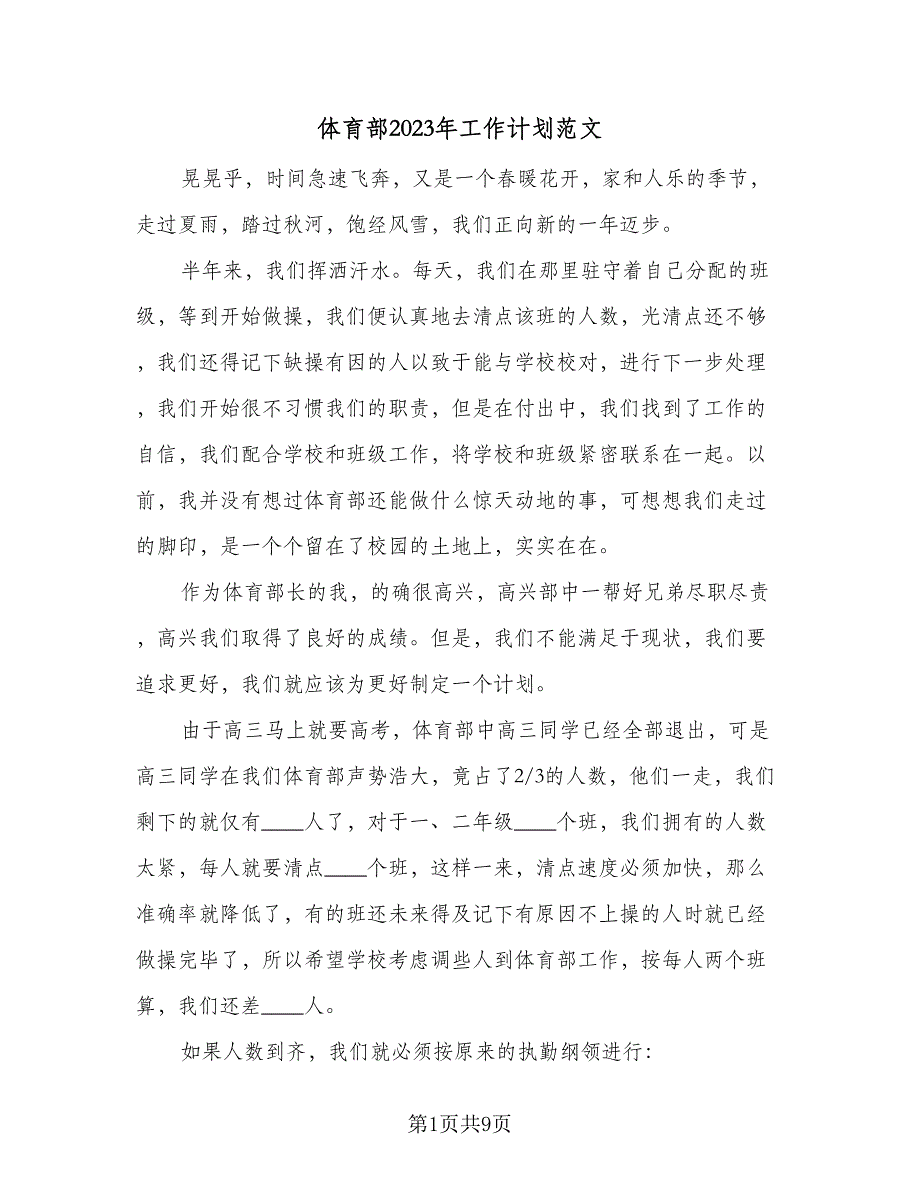 体育部2023年工作计划范文
晃晃乎，时间急速飞奔，又是一个春暖花开，家和人乐的季节，
走过夏雨，踏过秋河，饱经风雪，我们正向新的一年迈步。
半年来，我们挥洒汗水。每天，我们在那里驻守着自己分配的班
级，等到开始做操，我们便认真地去清点该班的人数，光清点还不够
，我们还得记下缺操有因的人以致于能与学校校对，进行下一步处理
，我们开始很不习惯我们的职责，但是在付出中，我们找到了工作的
自信，我们配合学校和班级工作，将学校和班级紧密联系在一起。以
前，我并没有想过体育部还能做什么惊天动地的事，可想想我们走过
的脚印，是一个个留在了校园的土地上，实实在在。
作为体育部长的我，的确很高兴，高兴部中一帮好兄弟尽职尽责
，高兴我们取得了良好的成绩。但是，我们不能满足于现状，我们要
追求更好，我们就应该为更好制定一个计划。
由于高三马上就要高考，体育部中高三同学已经全部退出，可是
高三同学在我们体育部声势浩大，竟占了2/3的人数，他们一走，我们
剩下的就仅有____人了，对于一、二年级____个班，我们拥有的人数
太紧，每人就要清点____个班，这样一来，清点速度必须加快，那么
准确率就降低了，有的班还未来得及记下有原因不上操的人时就已经
做操完毕了，所以希望学校考虑调些人到体育部工作，按每人两个班
算，我们还差____人。
如果人数到齐，我们就必须按原来的执勤纲领进行：
第1页共9页